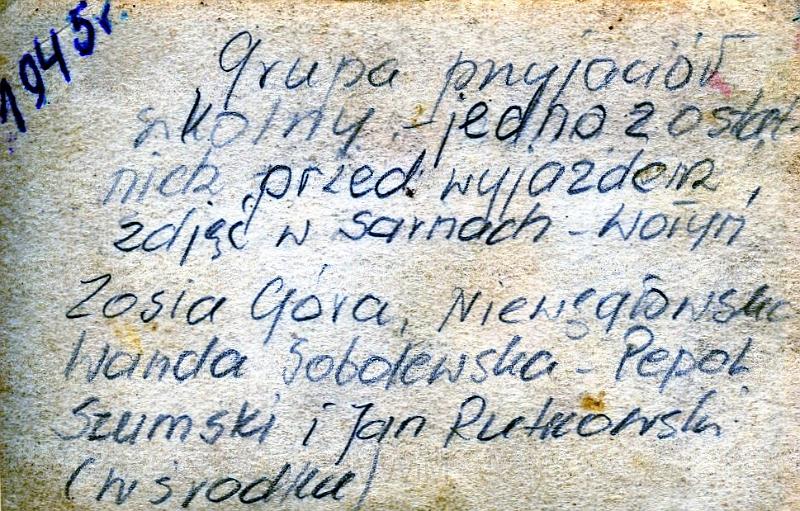 1945r.
Grupa przyjaciół
szkolny - jedno z ostat-
nich przed wyjazdem,
zdjęć w Sarnach - Wołyń
Zosia Góra, Niewęgłowska
Wanda Sobolewska - Pepol
Szumski i Jan Rutkowski
(w środku)